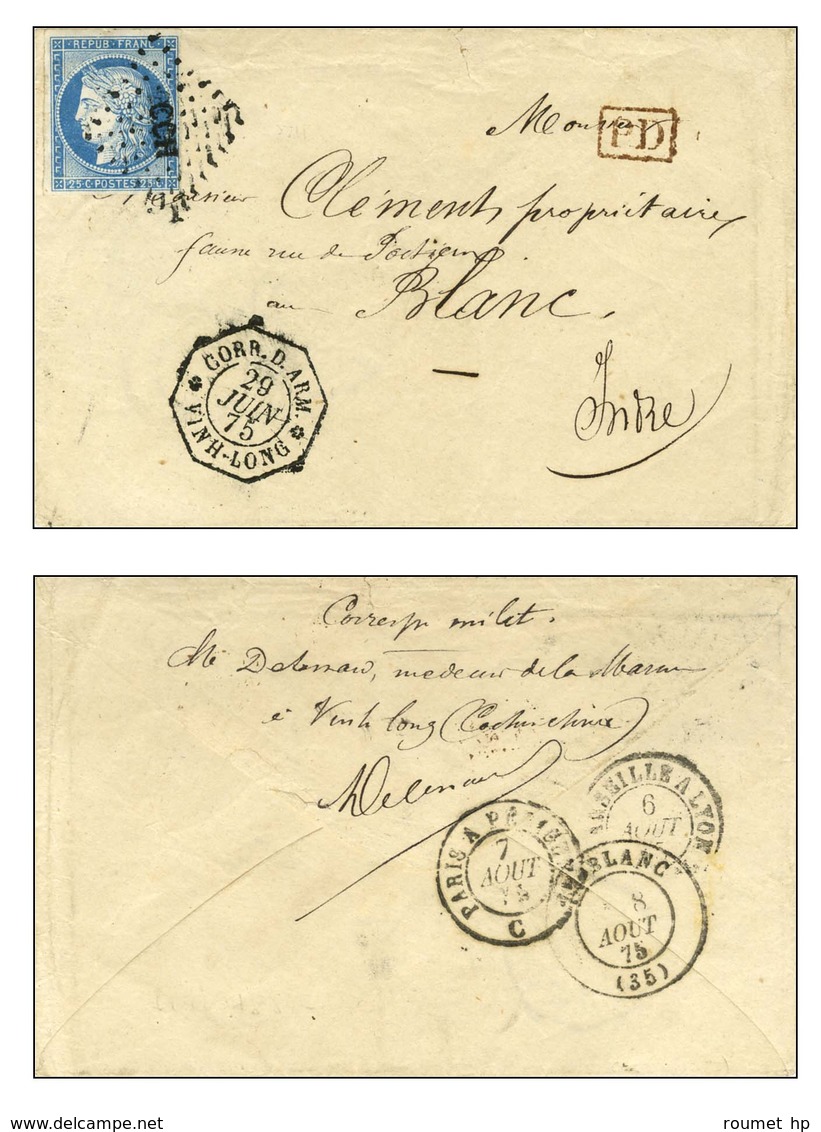 REPUB. FRANC.
CCH
25 C. POSTES 25 C.
PD
Monsieur
Monsieur Clément propriétaire
rue de
au Blanc.
Indre
CORR. D. ARM.
29
JUIN
75
VINH-LONG
Corresp. milit.
Mr médecin de la Marine
à Vinh long (Cochinchine
MARSEILLE A LYON
6
AOUT
PARIS A
7
AOUT
C
BLANC
8
AOUT
75
(35)
www.delcampe.net
roumet hp